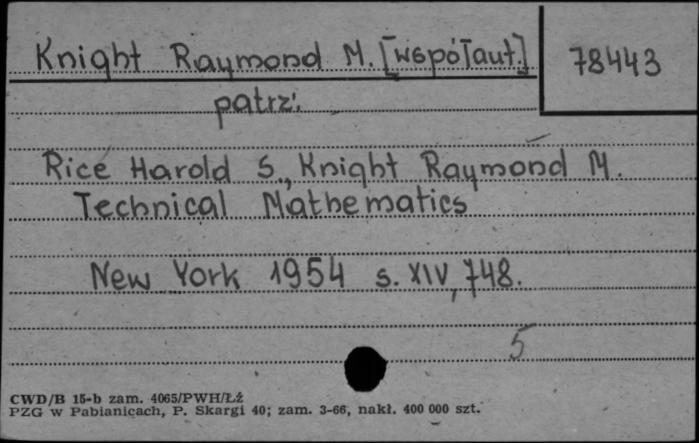 Knight Raymond M. [współaut.]
78443
patrz:
Rice Harold S., Knight Raymond M.
Technical Mathematics
New York 1954 s. XIV, 748.
5
CWD/B 15-b zam. 4065/PWH/Łź
PZG w Pabianicach, P. Skargi 40; zam. 3-66, nakł. 400 000 szt.